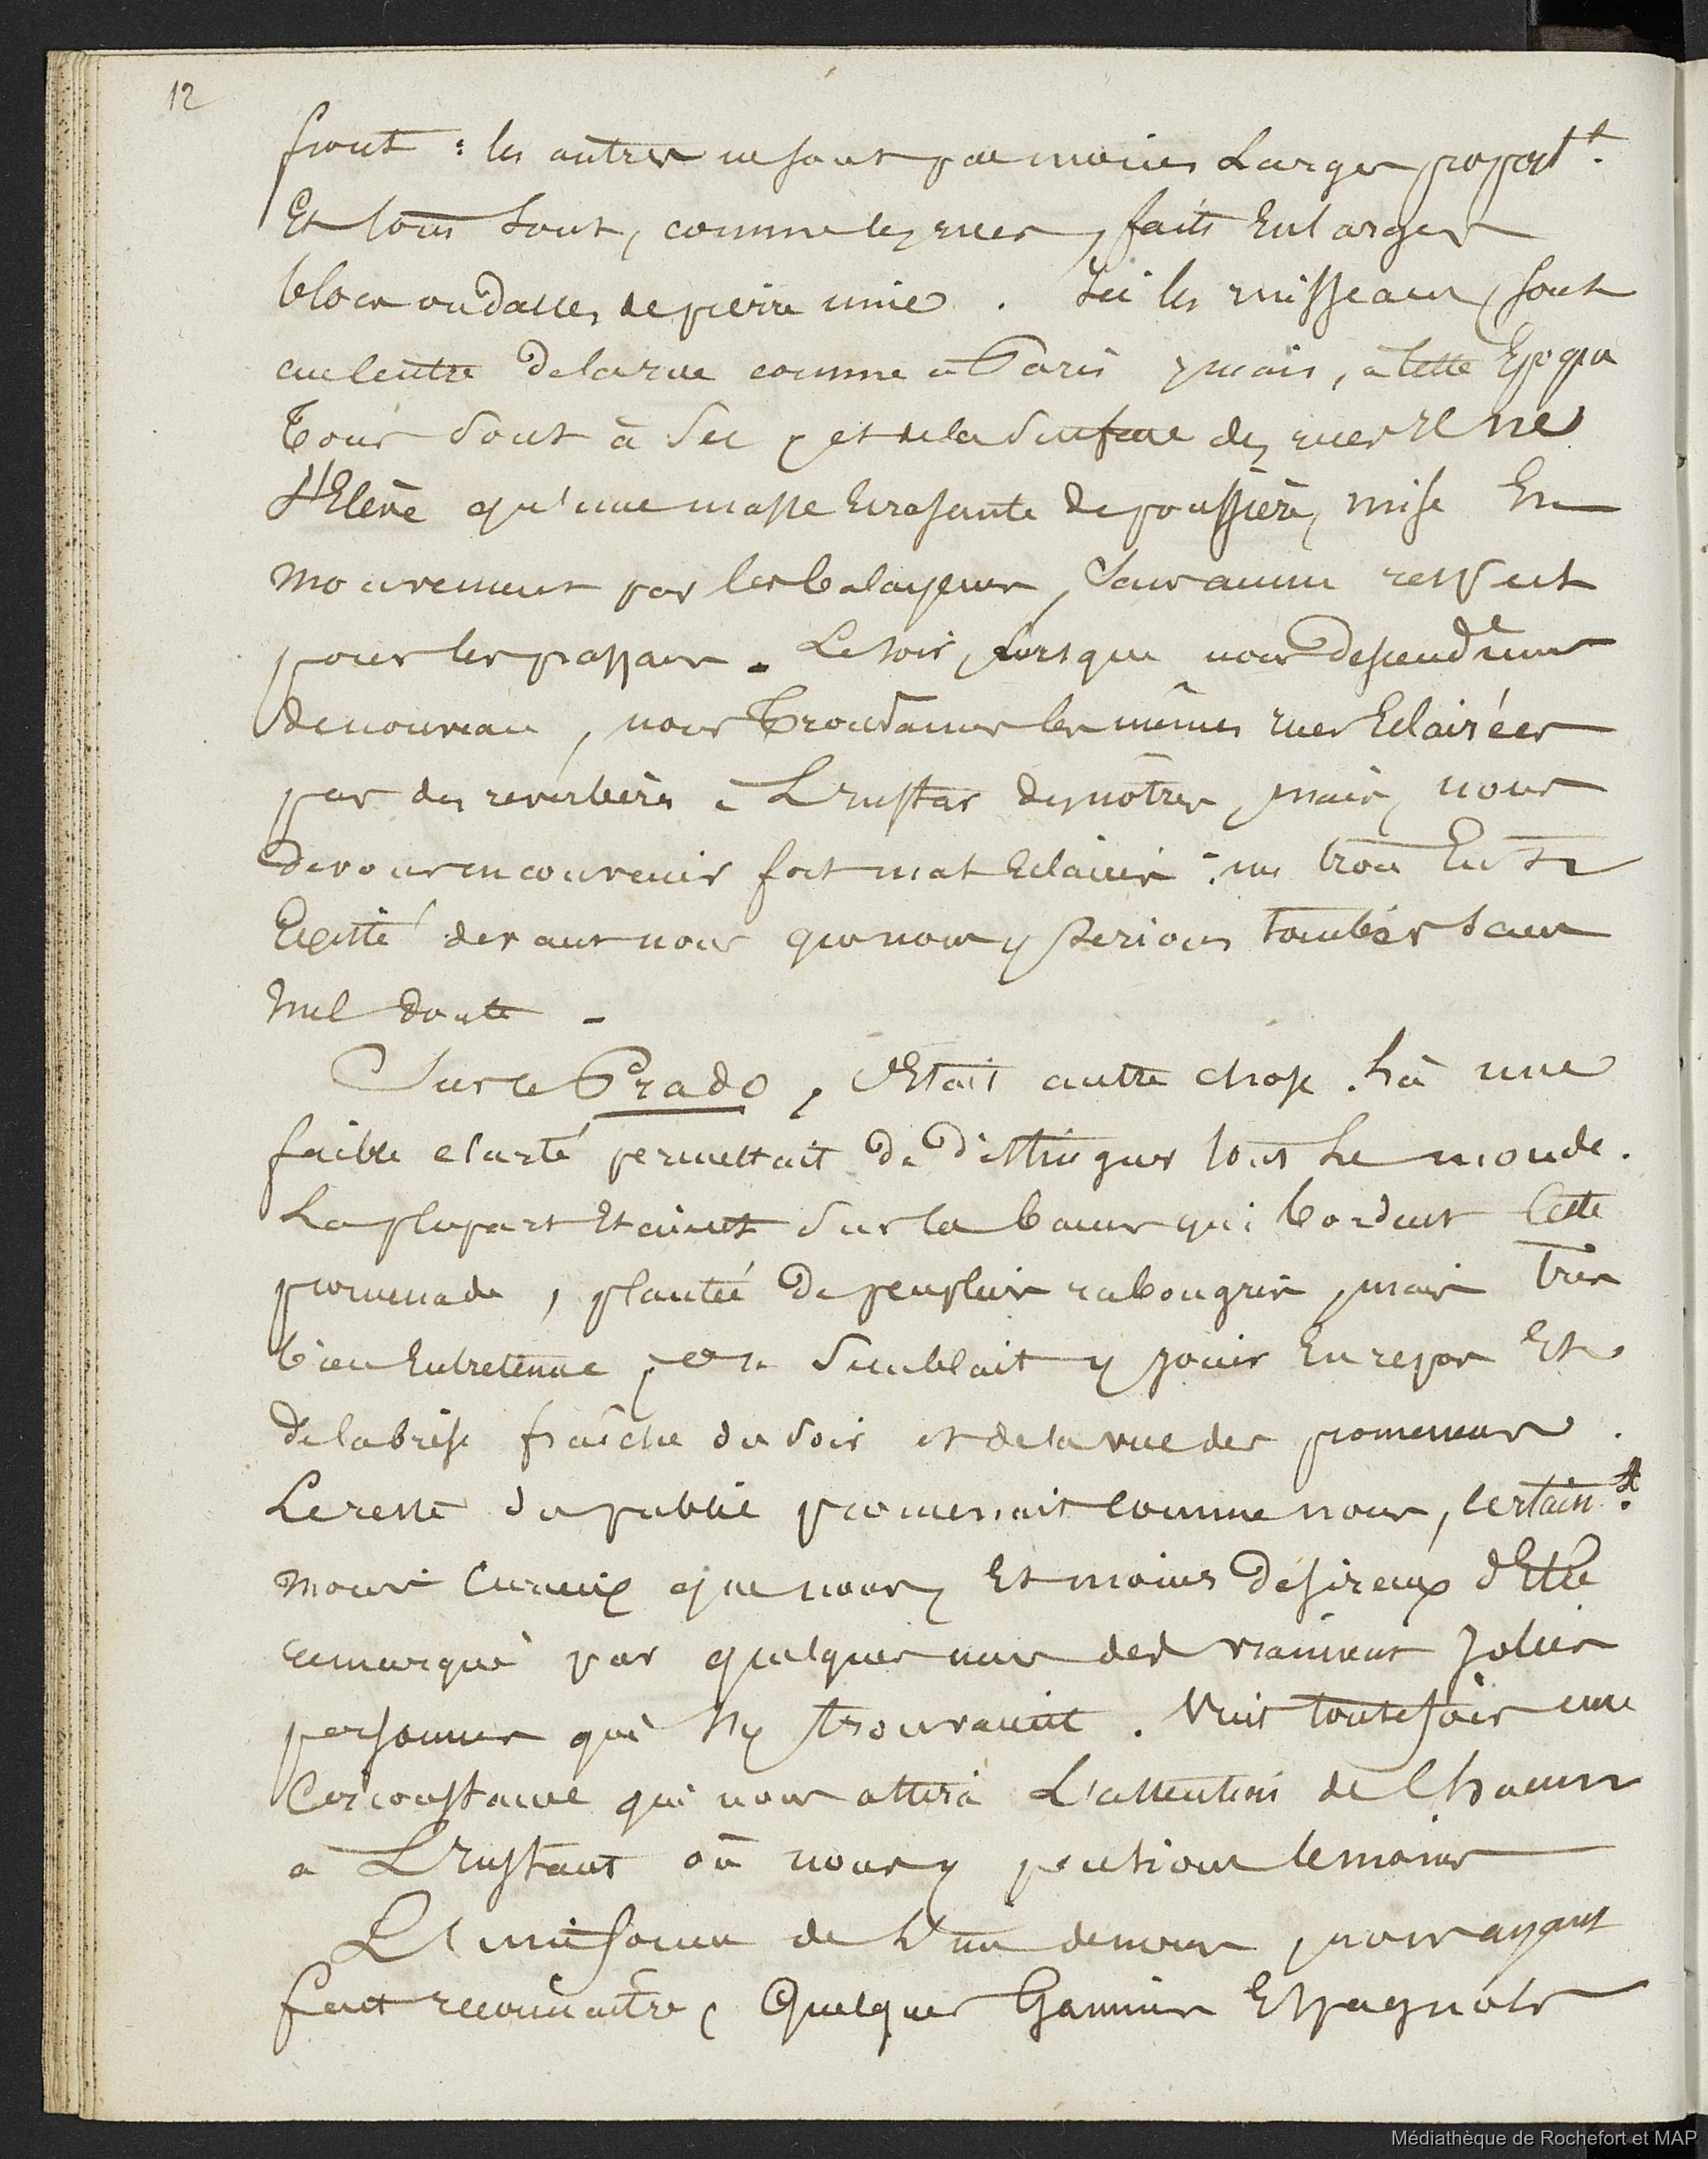 12
front : les autres ne sont pas moins Larges proport.t
Et tous sont, comme les rues, faits En larges
blocs ou dalles de pierre unie . Ici les ruisseaux sont
au centre de la rue comme à Paris, mais, à cette Epoque
Tous sont à sec, et de la surface des rues Il ne
s'Elève qu'une masse Ecrasante de poussière, mise En
mouvement par les balayeurs, Sans aucun respect
pour les passans. Le soir, lorsque nous descendîmes
de nouveau, nous Trouvames les mêmes rues Eclairées
par des reverbères à L'Instar des nôtres, mais, nous
devons en convenir fort mal Eclairées : un trou Eut
Existé devant nous que nous y serions tombés sans
Nul doute -
Sur le Prado, c'Etait autre chose. Là une
faible clarté permettait de distinguer tout Le monde.
La plupart Etaient sur les bancs qui bordent Cette
promenade, plantée de peupliers rabougris, mais Très
bien Entretenue, et semblait y jouir En repos Et
de la brise fraîche du soir et de la vue des promeneurs.
Le reste du public promenait comme nous, certain.t
moins Curieux que nous, Et moins désireux d'Etre
remarqué par quelques unes des vraiment Jolies
personnes qui s'y trouvaient. Vint toutefois une
Circonstance qui nous attira L'attention de Chacun
a L'Instant où nous y pensions le moins
L'uniforme de L'un de nous, nous ayant
fait reconnaître, Quelques Gamins Espagnols
Médiathèque de Rochefort et MAP